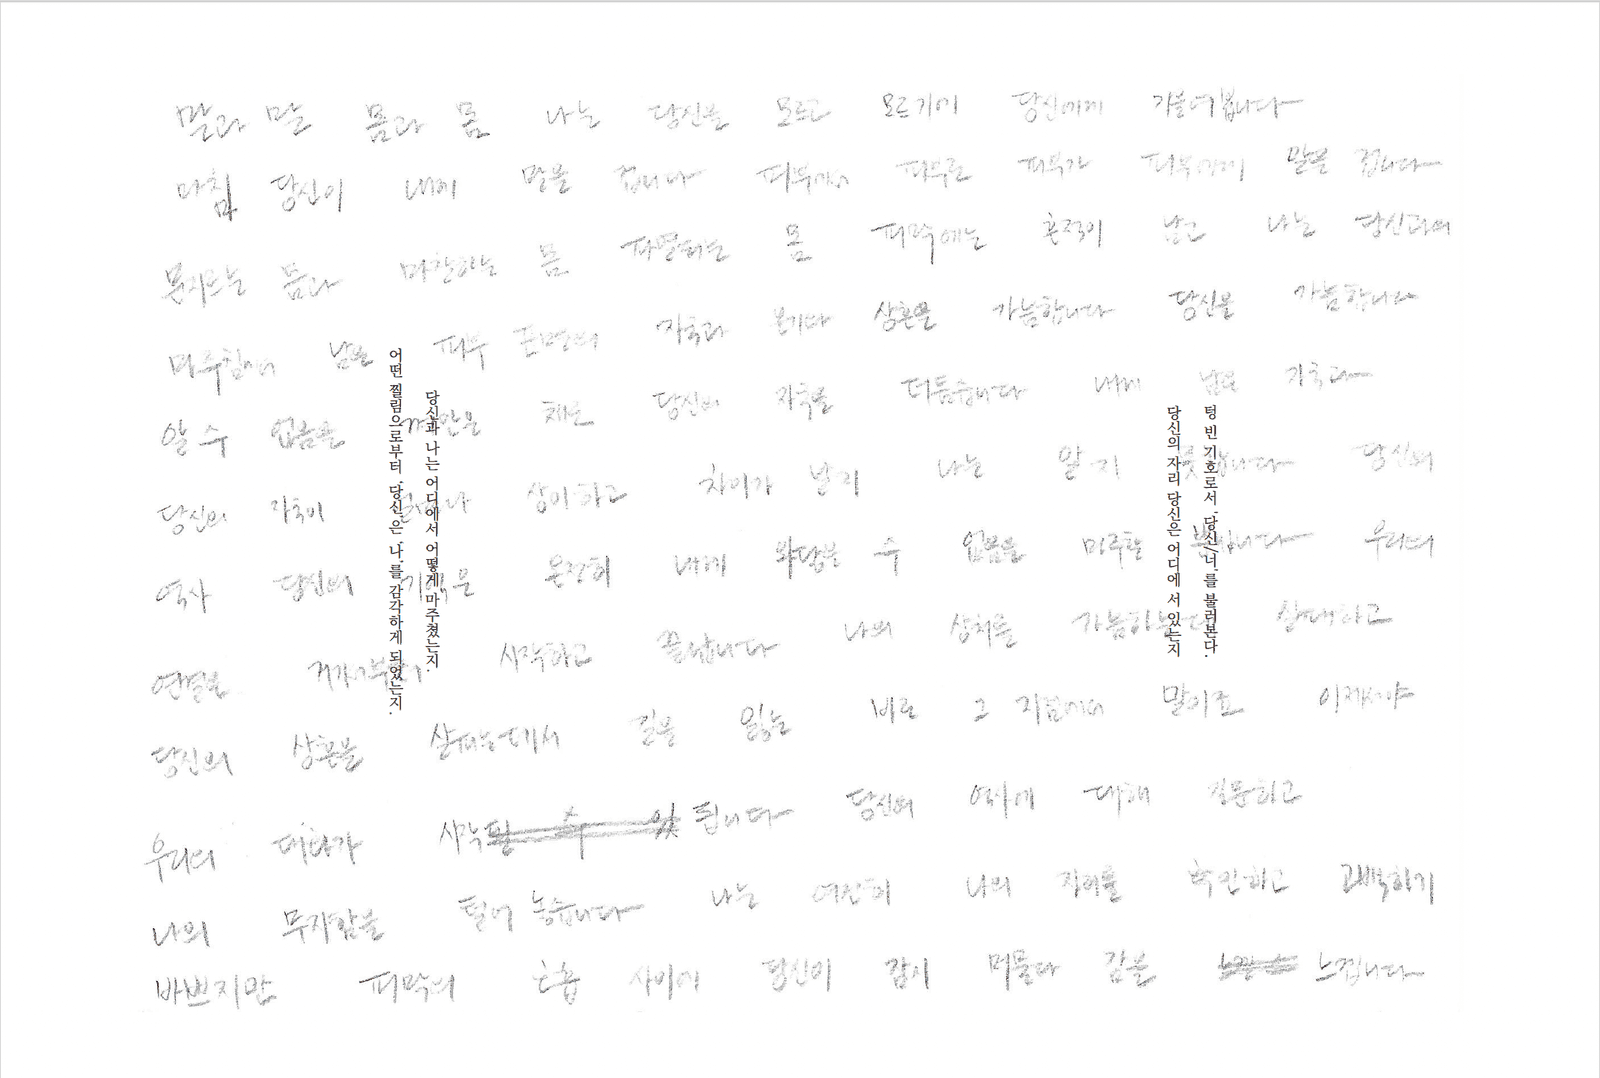 말과 말 몸과 몸 나는 당신을 모르고 모르기에 당신에게 기울여봅니다
마침 당신이 내게 말을 겁니다 피부에서 피부로 피부가 피부에게 말을 겁니다
몸 마찰하는 몸 몸 피막에는 흔적이 남고 나는 당신과의
마주침에서 남은 피부 표면의 자국과 온기와 상흔을 가늠합니다 당신을 가늠합니다
알 수 없음을 채로 당신의 자국을 더듬습니다 내게 남은 자국과
당신의 자국이 상이하고 차이가 날지 나는 알지 못합니다 당신의
역사 당신의 기억은 온전히 내게 와닿을 수 없음을 마주할 뿐입니다 우리의
연결은 거기서부터 시작하고 끝납니다 나의 상처를 가늠하는 상대하고
당신의 상흔을 살피는데서 길을 잃는 바로 그 지점에서 말이죠 이제서야
우리의 대화가 시작될 수 있 됩니다 당신의 역사에 대해 질문하고
나의 무지함을 털어 놓습니다 나는 여전히 나의 자리를 확인하고 고백하기
바쁘지만 피막의 호흡 사이에 당신이 잠시 머물다 감을 느낄 수 느낍니다
텅 빈 기호로서 ‘당신/너’를 불러본다.
당신의 자리 당신은 어디에 서 있는지
당신과 나는 어디에서 어떻게 마주쳤는지.
어떤 찔림으로부터 ‘당신’은 ‘나’를 감각하게 되었는지.